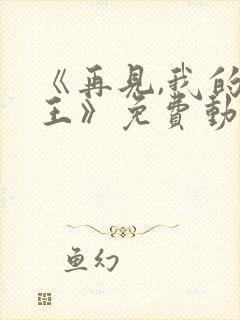 《再見,我的
王》免費動
魚幻